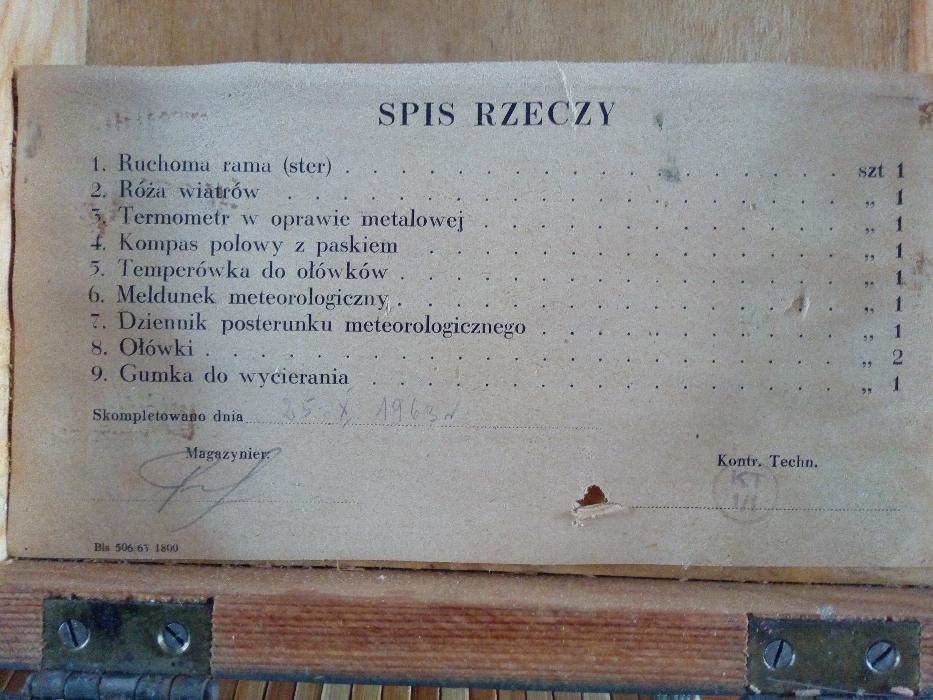 SPIS RZECZY
1. Ruchoma rama (ster) . . . . . . . . . . . . . . . . . . szt 1
2. Róża wiatrów . . . . . . . . . . . . . . . . . . . . „ 1
3. Termometr w oprawie metalowej . . . . . . . . . . . . . „ 1
4. Kompas polowy z paskiem . . . . . . . . . . . . . . . „ 1
5. Temperówka do ołówków . . . . . . . . . . . . . . . . „ 1
6. Meldunek meteorologiczny . . . . . . . . . . . . . . . . „ 1
7. Dziennik posterunku meteorologicznego . . . . . . . . . . . „ 1
8. Ołówki . . . . . . . . . . . . . . . . . . . . . . . „ 2
9. Gumka do wycierania . . . . . . . . . . . . . . . . . „ 1
Skompletowano dnia 25. X. 1963 r
Magazynier:
Kontr. Techn.
KT
1/1
Bis 506/63 1800